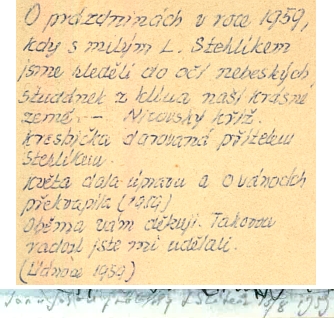 O prázdninách v roce 1959,
kdy s milým L. Stehlíkem
jsme hleděli do očí nebeských
studánek z klína naší krásné
země. – Nicovský kříž.
Kresbička darovaná přítelem
Stehlíkem.
Květa dala úpravu a o vánocích
překvapila (1959)
Oběma vám děkuji. Takovou
radost jste mi udělali.
(Vánoce 1959)